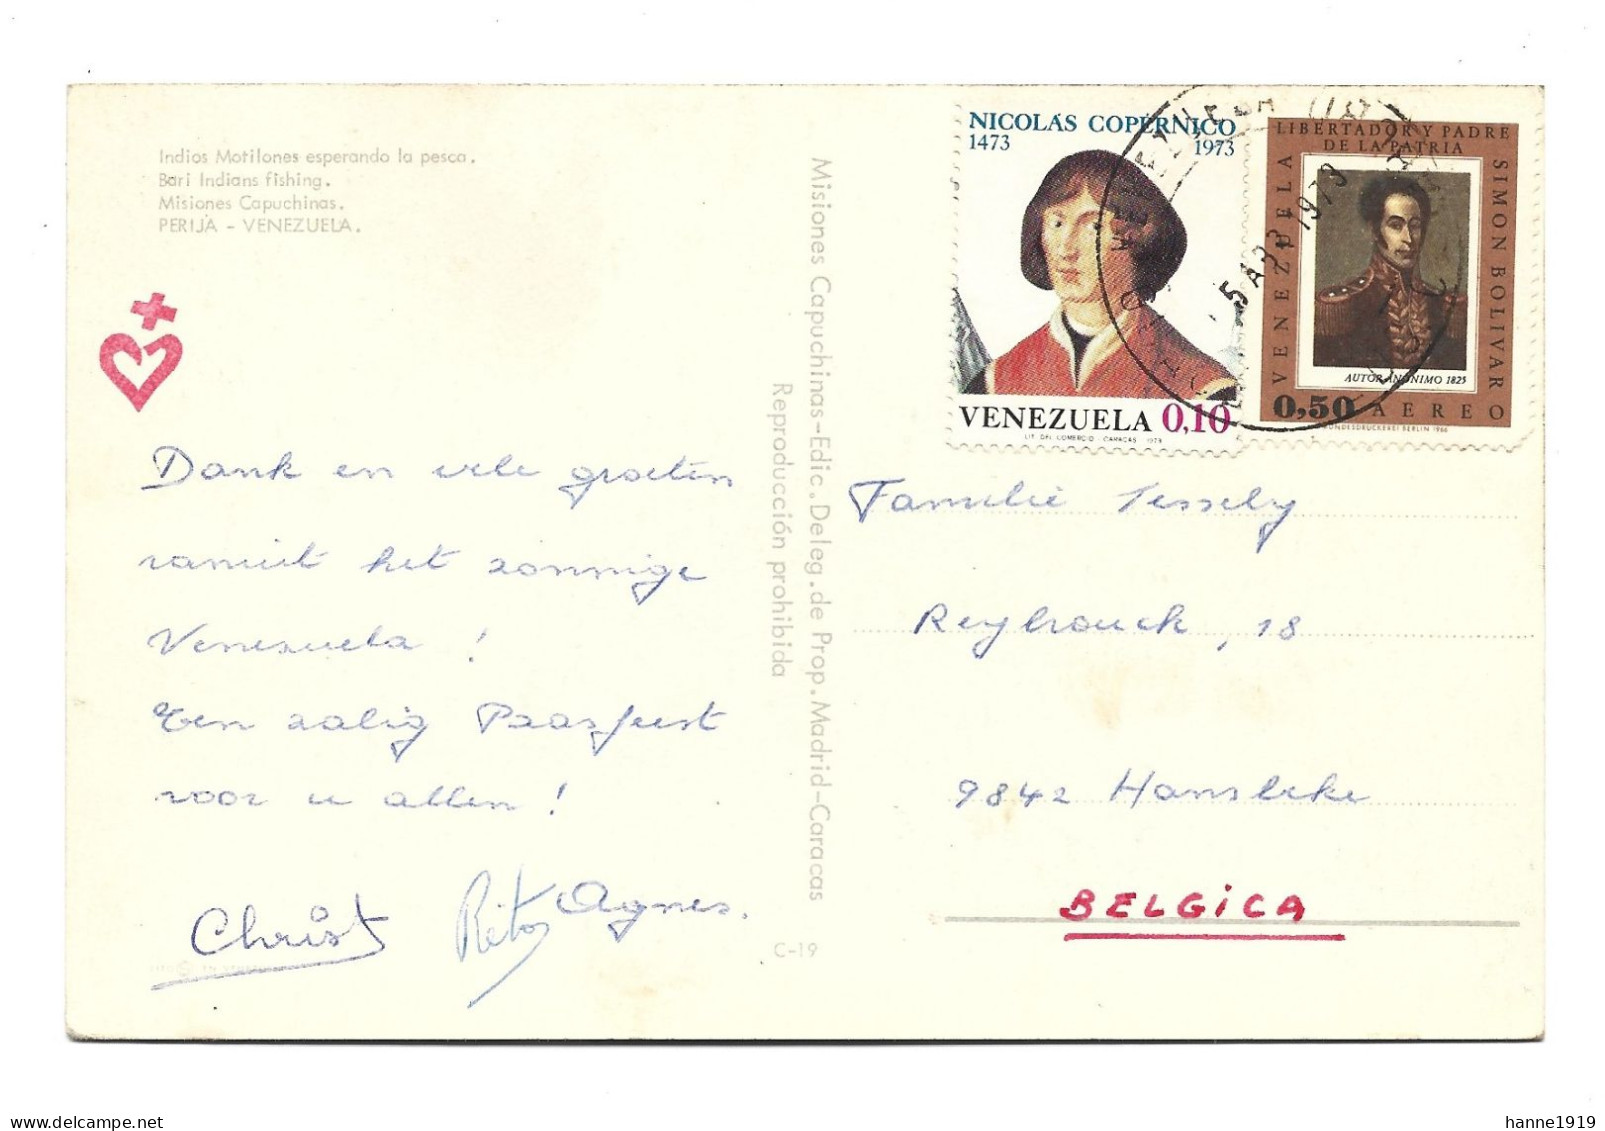 Indios Motilones esperando la pesca.
Bari Indians fishing.
Misiones Capuchinas.
PERIJA - VENEZUELA.
Dank en vele groeten
vanuit het zonnige
Venezuela !
Een zalig Paasfeest
voor u allen !
Christ Rita Agnes.
Misiones Capuchinas-Edic.Deleg.de Prop.Madrid-Caracas
Reproducción prohibida
C-19
NICOLÁS COPÉRNICO
1473 1973
VENEZUELA 0,10
LIT. DEL COMERCIO - CARACAS 1973
LIBERTADOR Y PADRE
DE LA PATRIA
VENEZUELA
SIMON BOLIVAR
AUTOR ANONIMO 1825
0,50 AEREO
BUNDESDRUCKEREI BERLIN 1966
1973
Familie
Reybrouck, 18
9842 Hansbeke
BELGICA
hanne1919